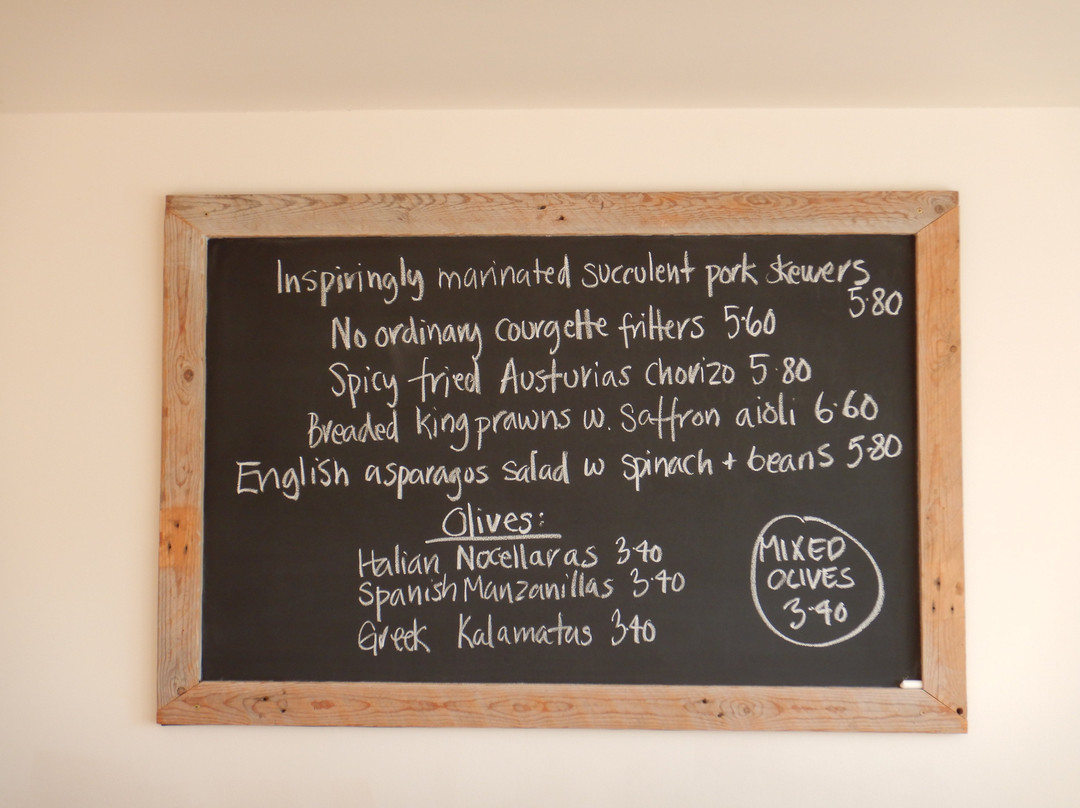 Inspiringly marinated succulent pork skewers
5.80
No ordinary courgette fritters 5.60
Spicy fried Austurias chorizo 5.80
Breaded king prawns w. saffron aioli 6.60
English asparagos salad w spinach + beans 5.80
Olives:
Italian Nocellaras 3.40
Spanish Manzanillas 3.40
Greek Kalamatas 3.40
MIXED
OLIVES
3.40